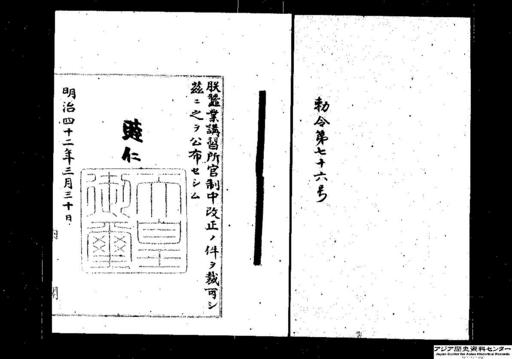 勅令第七十六号
朕蚕業講習所官制中改正ノ件ヲ裁可シ
茲ニ之ヲ公布セシム
睦仁
天皇
御璽
明治四十二年三月三十日
内閣
アジア歴史資料センター
Japan Center for Asian Historical Records